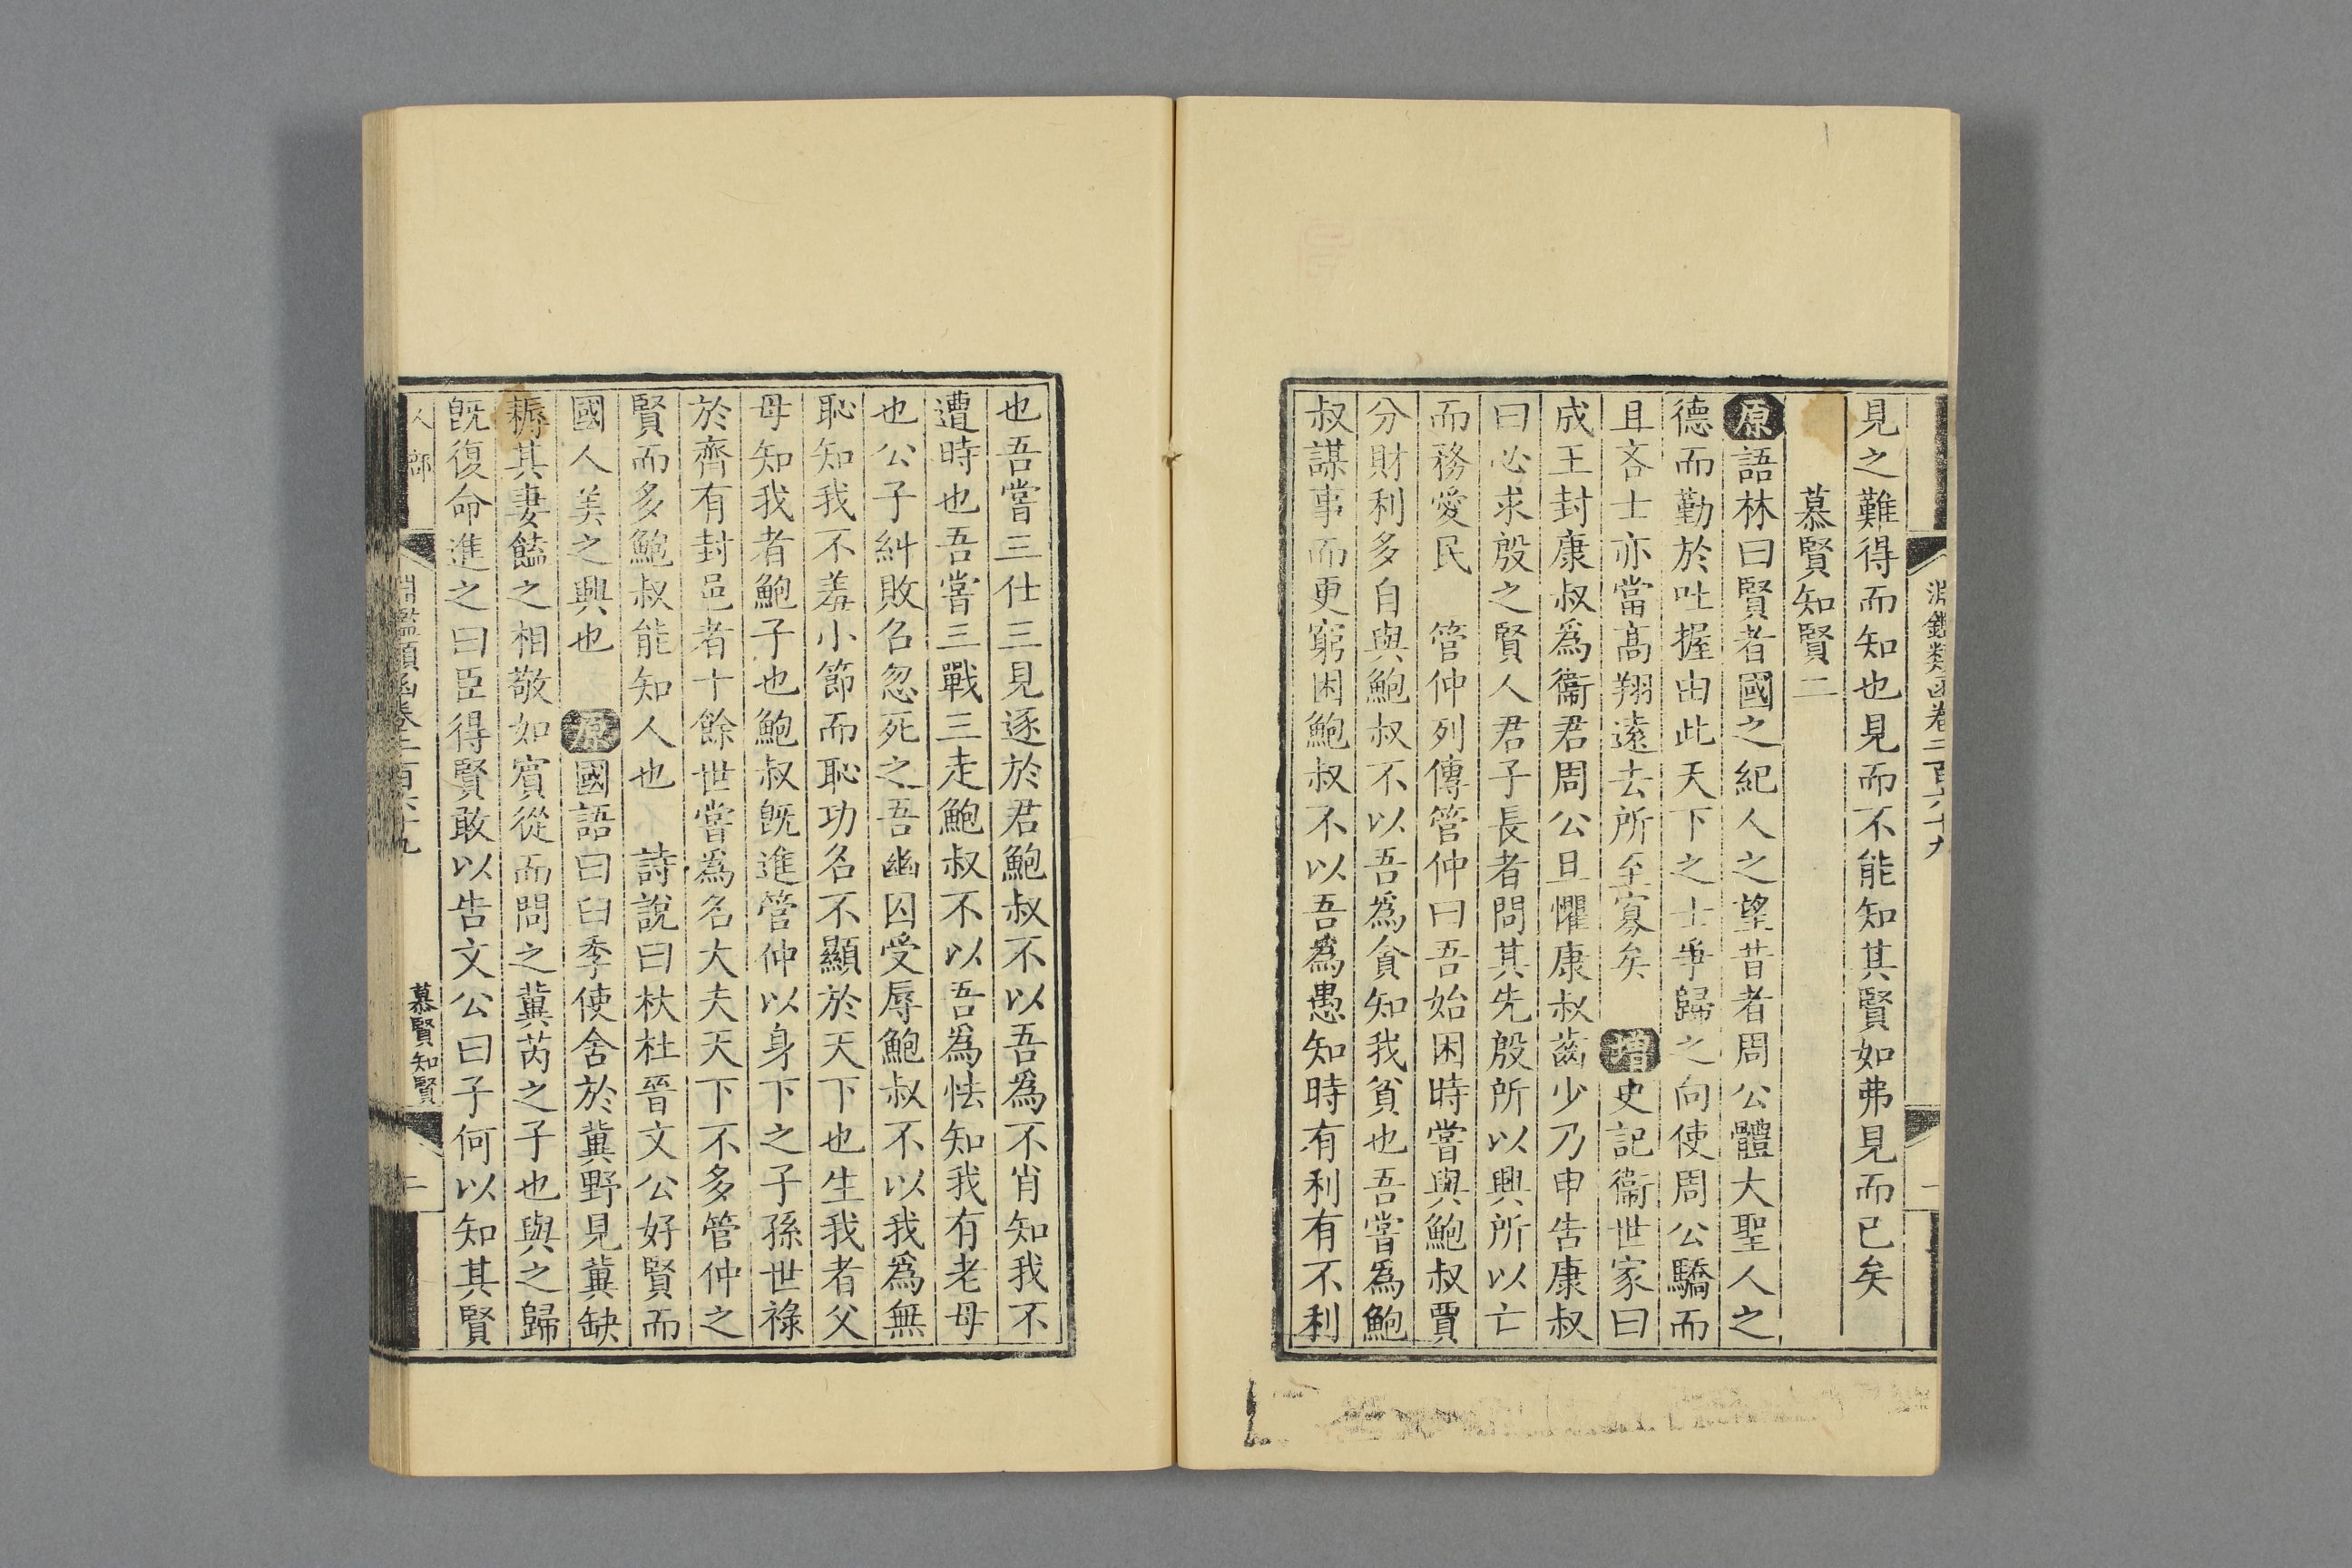 淵鑑類函卷二百六十九
一
見之難得而知也見而不能知其賢如弗見而已矣
慕賢知賢二
原語林曰賢者國之紀人之望昔者周公體大聖人之
德而勤於吐握由此天下之士爭歸之向使周公驕而
且吝士亦當高翔遠去所至寡矣 增史記衞世家曰
成王封康叔爲衞君周公旦懼康叔齒少乃申告康叔
曰必求殷之賢人君子長者問其先殷所以興所以亡
而務愛民 管仲列傳管仲曰吾始困時嘗與鮑叔賈
分財利多自與鮑叔不以吾爲貪知我貧也吾嘗爲鮑
叔謀事而更窮困鮑叔不以吾爲愚知時有利有不利
也吾嘗三仕三見逐於君鮑叔不以吾爲不肖知我不
遭時也吾嘗三戰三走鮑叔不以吾爲怯知我有老母
也公子糾敗召忽死之吾幽囚受辱鮑叔不以我爲無
恥知我不羞小節而恥功名不顯於天下也生我者父
母知我者鮑子也鮑叔旣進管仲以身下之子孫世祿
於齊有封邑者十餘世嘗爲名大夫天下不多管仲之
賢而多鮑叔能知人也 詩說曰杕杜晉文公好賢而
國人美之興也 原國語曰臼季使舍於冀野見冀缺
耨其妻饁之相敬如賓從而問之冀芮之子也與之歸
旣復命進之曰臣得賢敢以告文公曰子何以知其賢
人部
淵鑑類函卷二百六十九
慕賢知賢
二